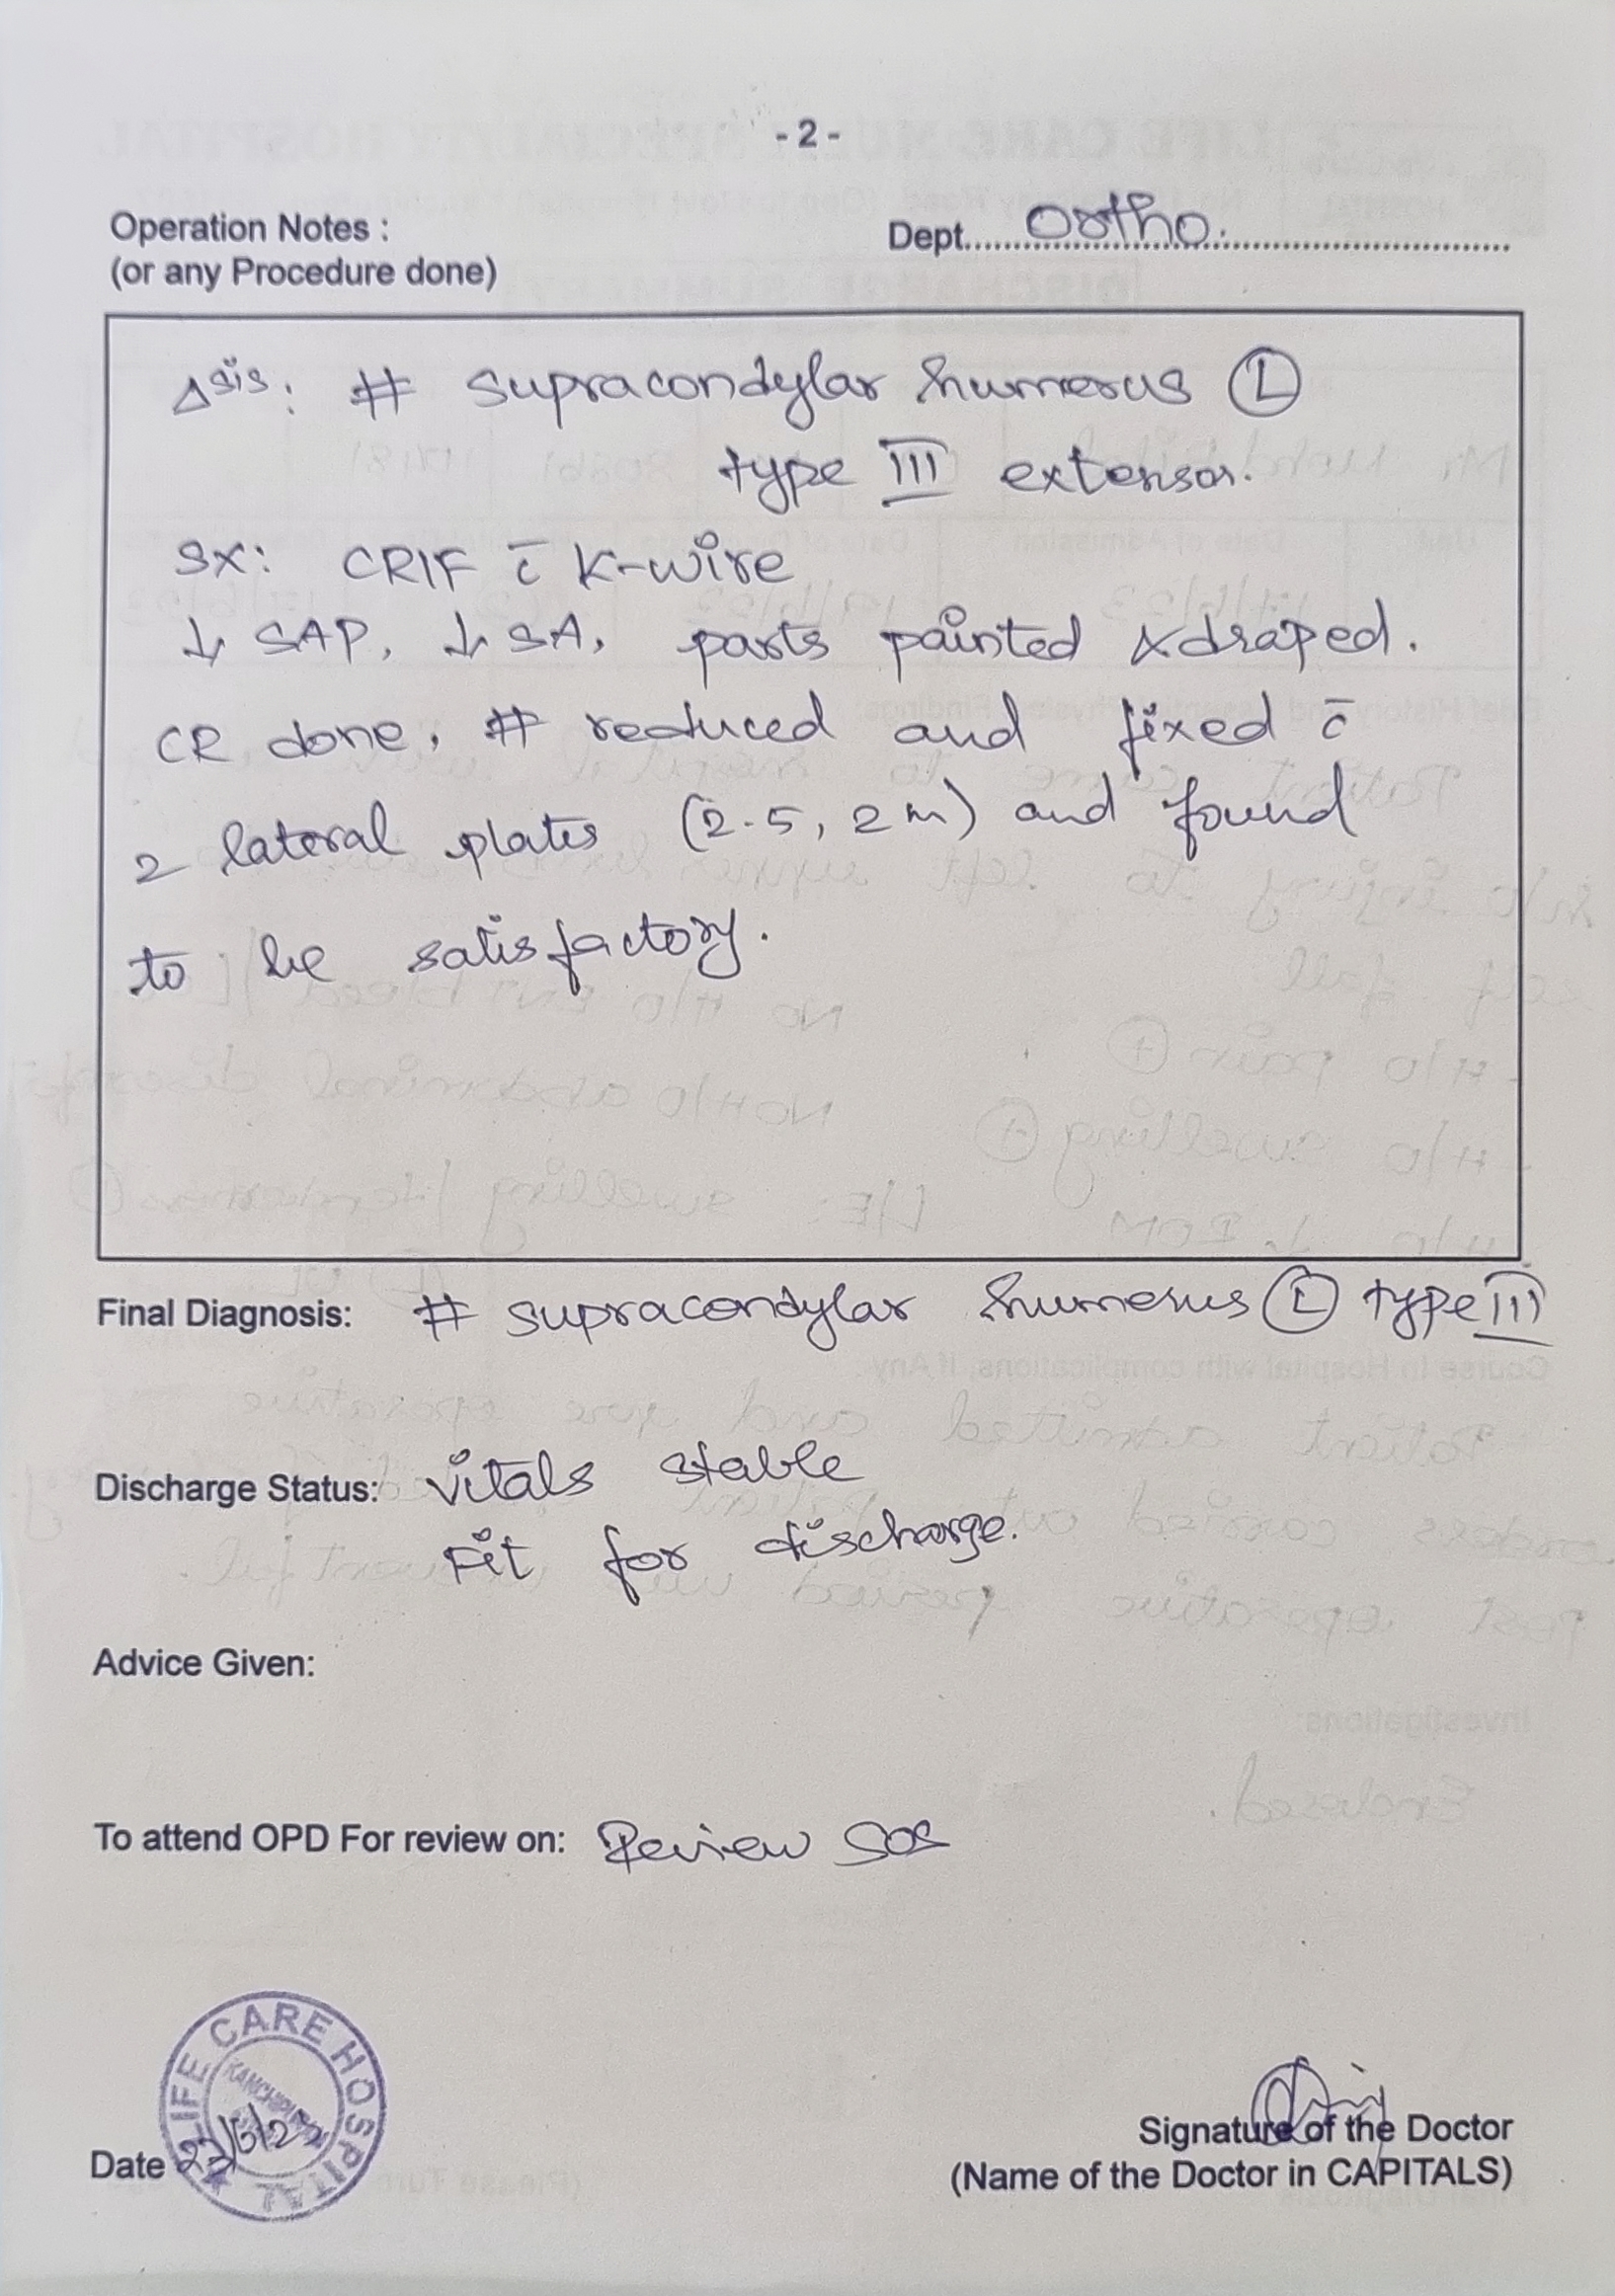 - 2 -
Operation Notes :
(or any Procedure done)
Dept. Ortho.
Δsis: # supracondylar humerus Ⓛ
type III extensor.
SX: CRIF c̄ K-wire
↓ SAP, ↓ SA, parts painted & draped.
CR done, # reduced and fixed c̄
2 lateral plates (2.5, 2 m) and found
to be satisfactory.
Final Diagnosis: # supracondylar humerus Ⓛ type III
Discharge Status: vitals stable
Fit for discharge.
Advice Given:
To attend OPD For review on: Review SOS
LIFE CARE HOSPITAL
Date
Signature of the Doctor
(Name of the Doctor in CAPITALS)